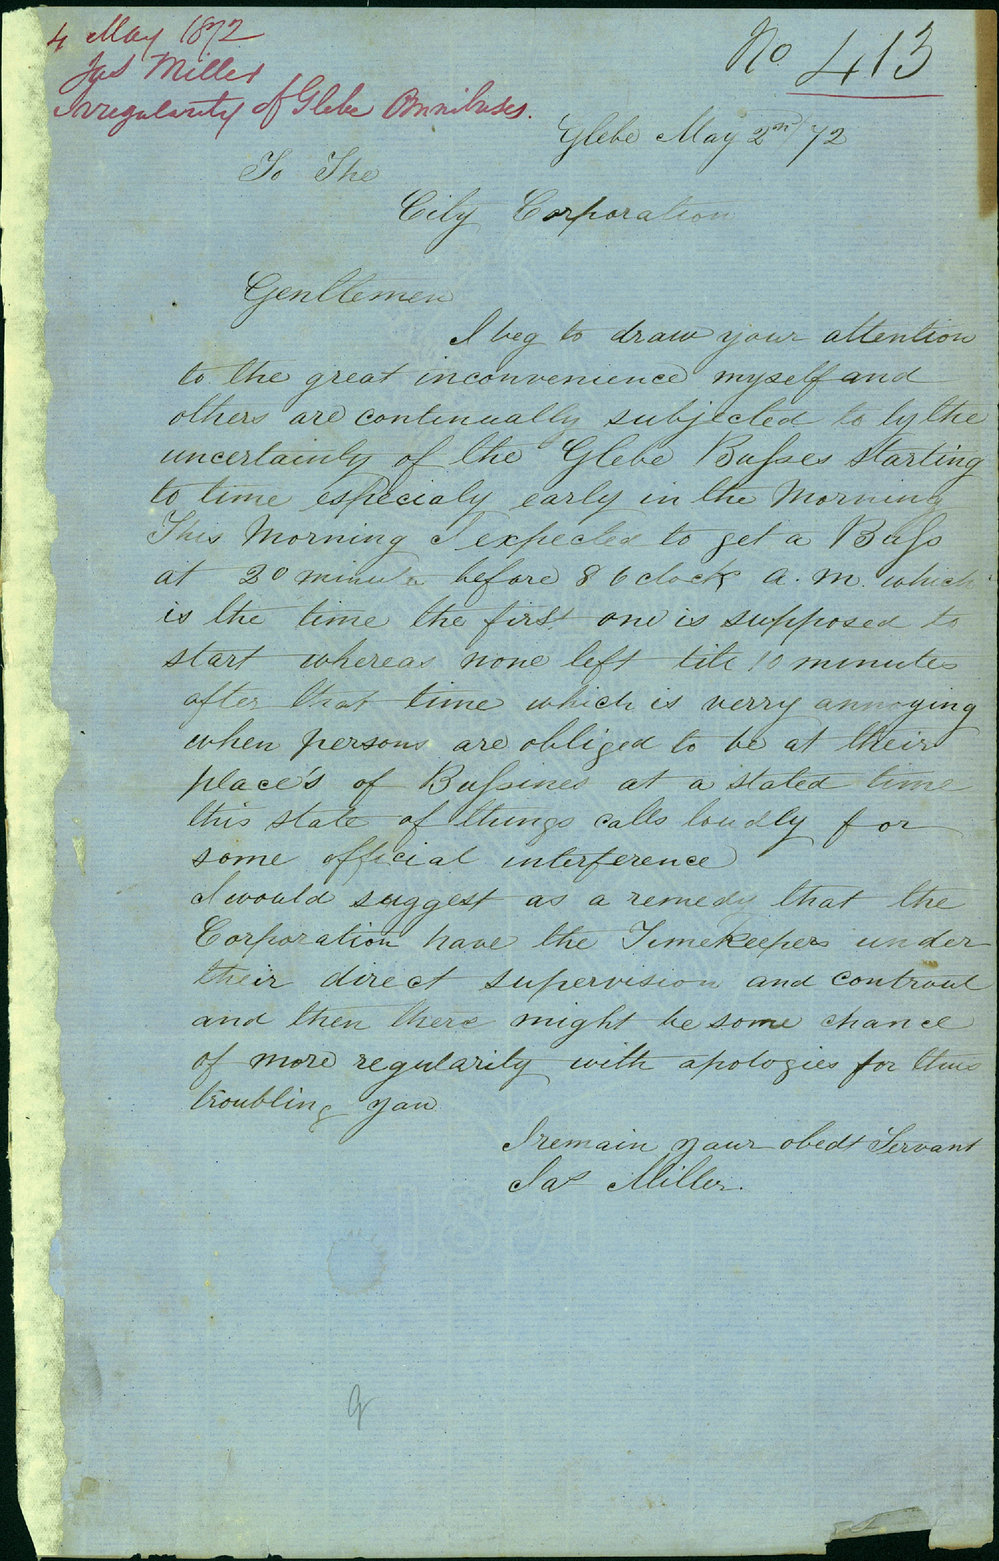 4 May 1872
Jas Miller
Irregularity of Glebe Omnibuses.
No 413
Glebe May 2nd/72
To The
City Corporation
Gentlemen
I beg to draw your attention
to the great inconvenience myself and
others are continually subjected to by the
uncertainty of the Glebe Busses starting
to time especialy early in the Morning
This Morning I expected to get a Buss
at 20 minute before 8 oclock a.m. which
is the time the first one is supposed to
start whereas none left till 10 minutes
after that time which is verry annoying
when persons are obliged to be at their
place's of Bussines at a stated time
this state of things calls loudly for
some official interference
I would suggest as a remedy that the
Corporation have the Timekeepers under
their direct supervision and controul
and then there might be some chance
of more regularity with apologies for thus
troubling you
I remain your obedt Servant
Jas Miller.